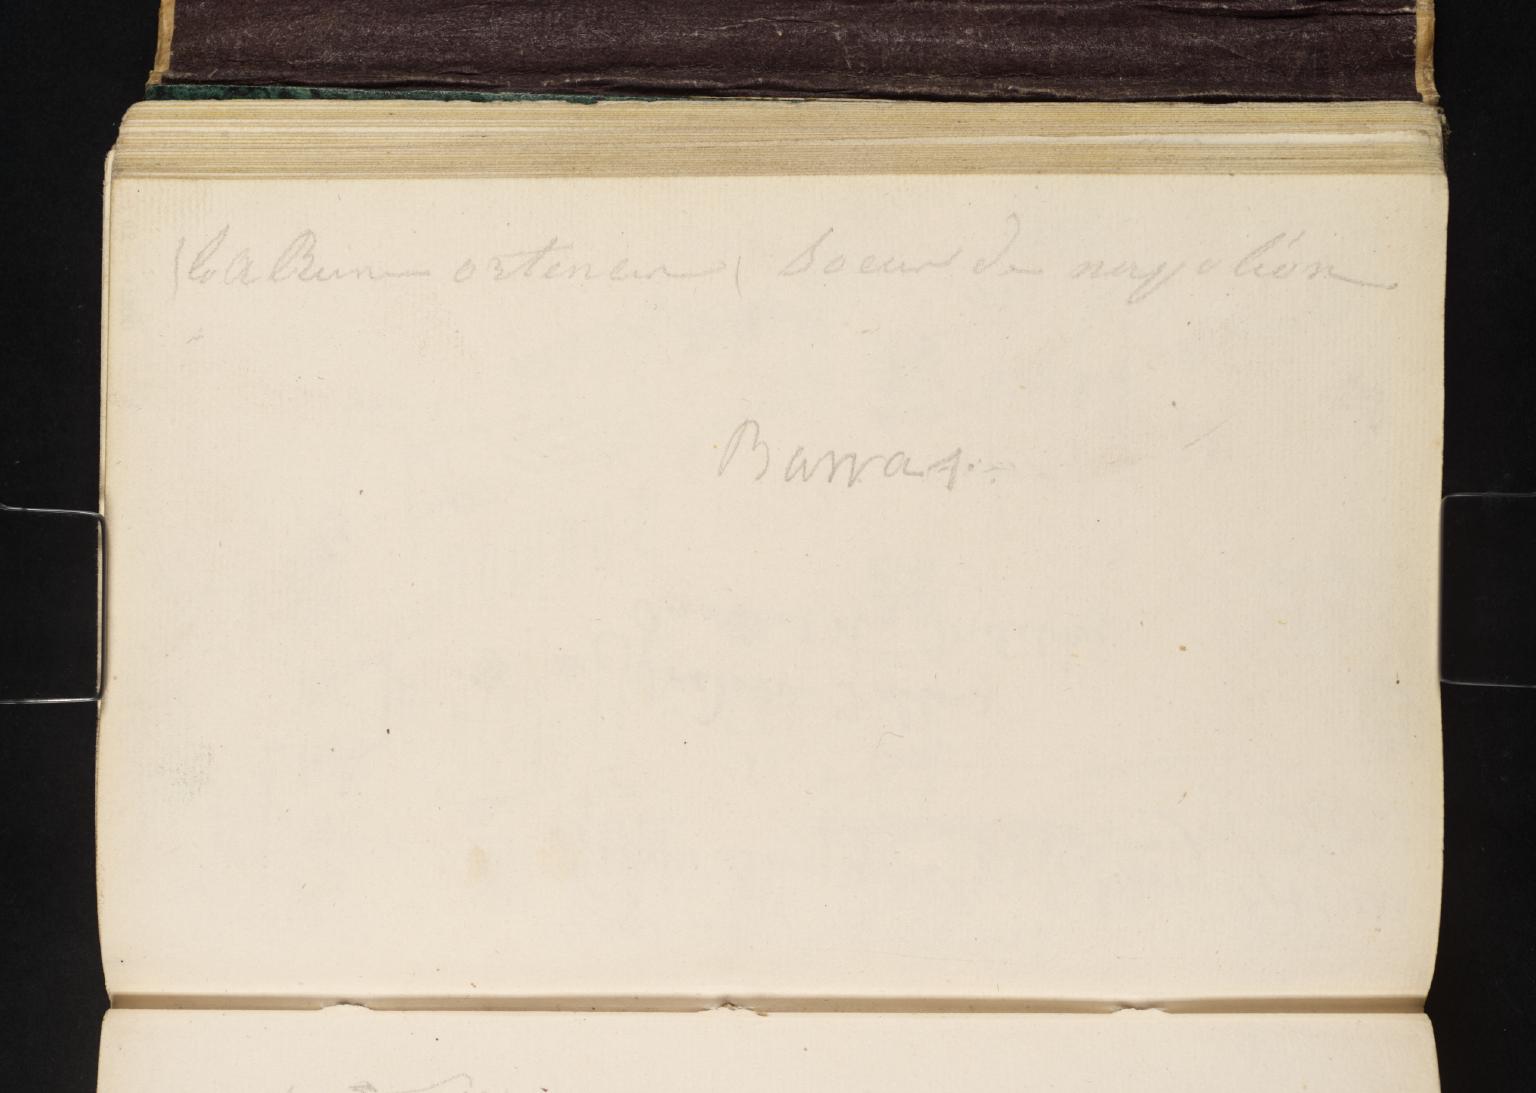 (la Rune ortence ( Soeur de napoléon
Barras.